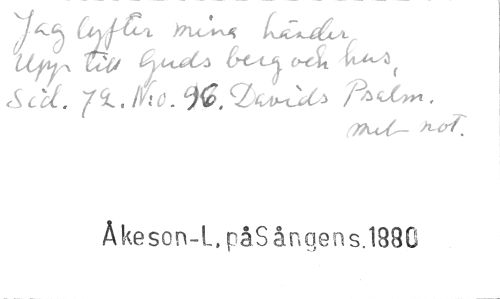 Jag lyfter mina händer
Upp till Guds berg och hus,
Sid. 72. N:o. 96. Davids Psalm.
met not.
Åkeson-L, påSångens.1880